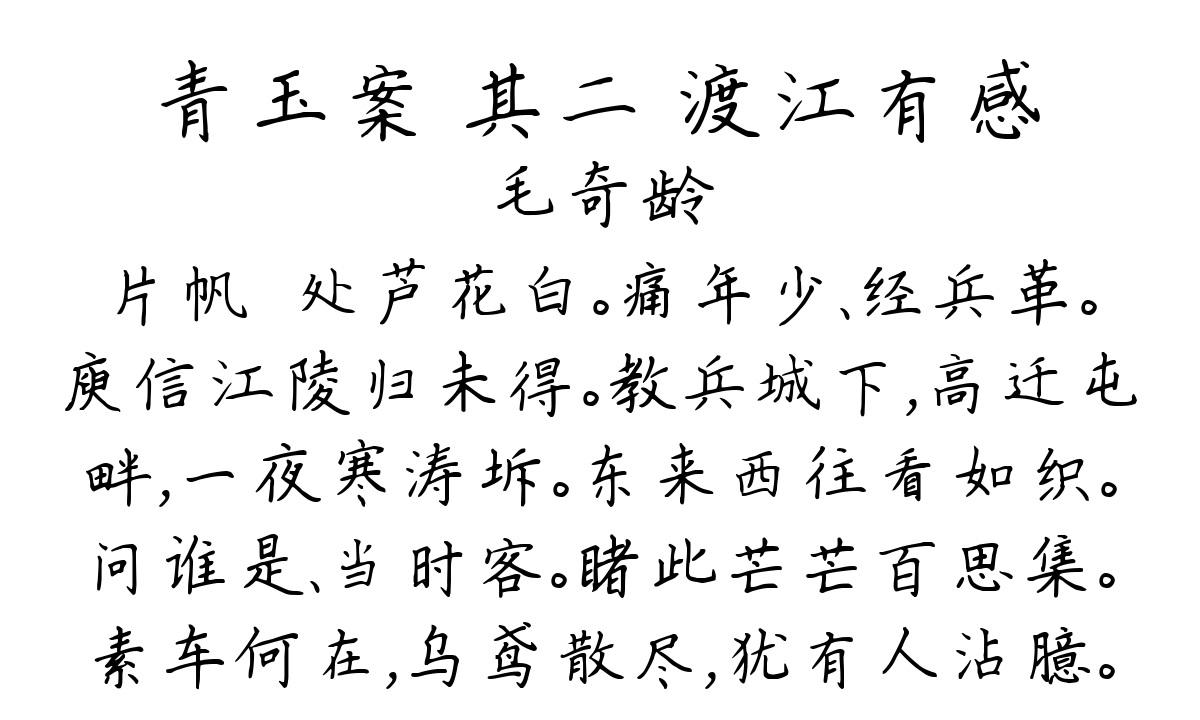 青玉案 其二 渡江有感
毛奇龄
片帆 处芦花白。痛年少、经兵革。
庾信江陵归未得。教兵城下,高迁屯
畔,一夜寒涛坼。东来西往看如织。
问谁是、当时客。睹此芒芒百思集。
素车何在,乌鸢散尽,犹有人沾臆。